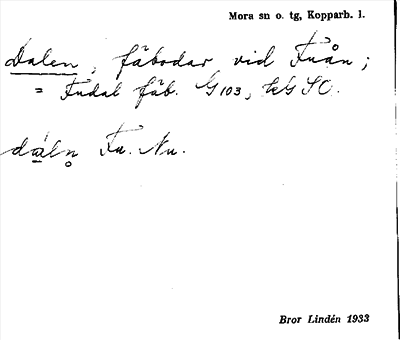 Mora sn o. tg, Kopparb. l.
Dalen, fäbodar vid Fuån;
= Fudal fäb. G 103, kG SO.
däln Fu. Nu.
Bror Lindén 1933